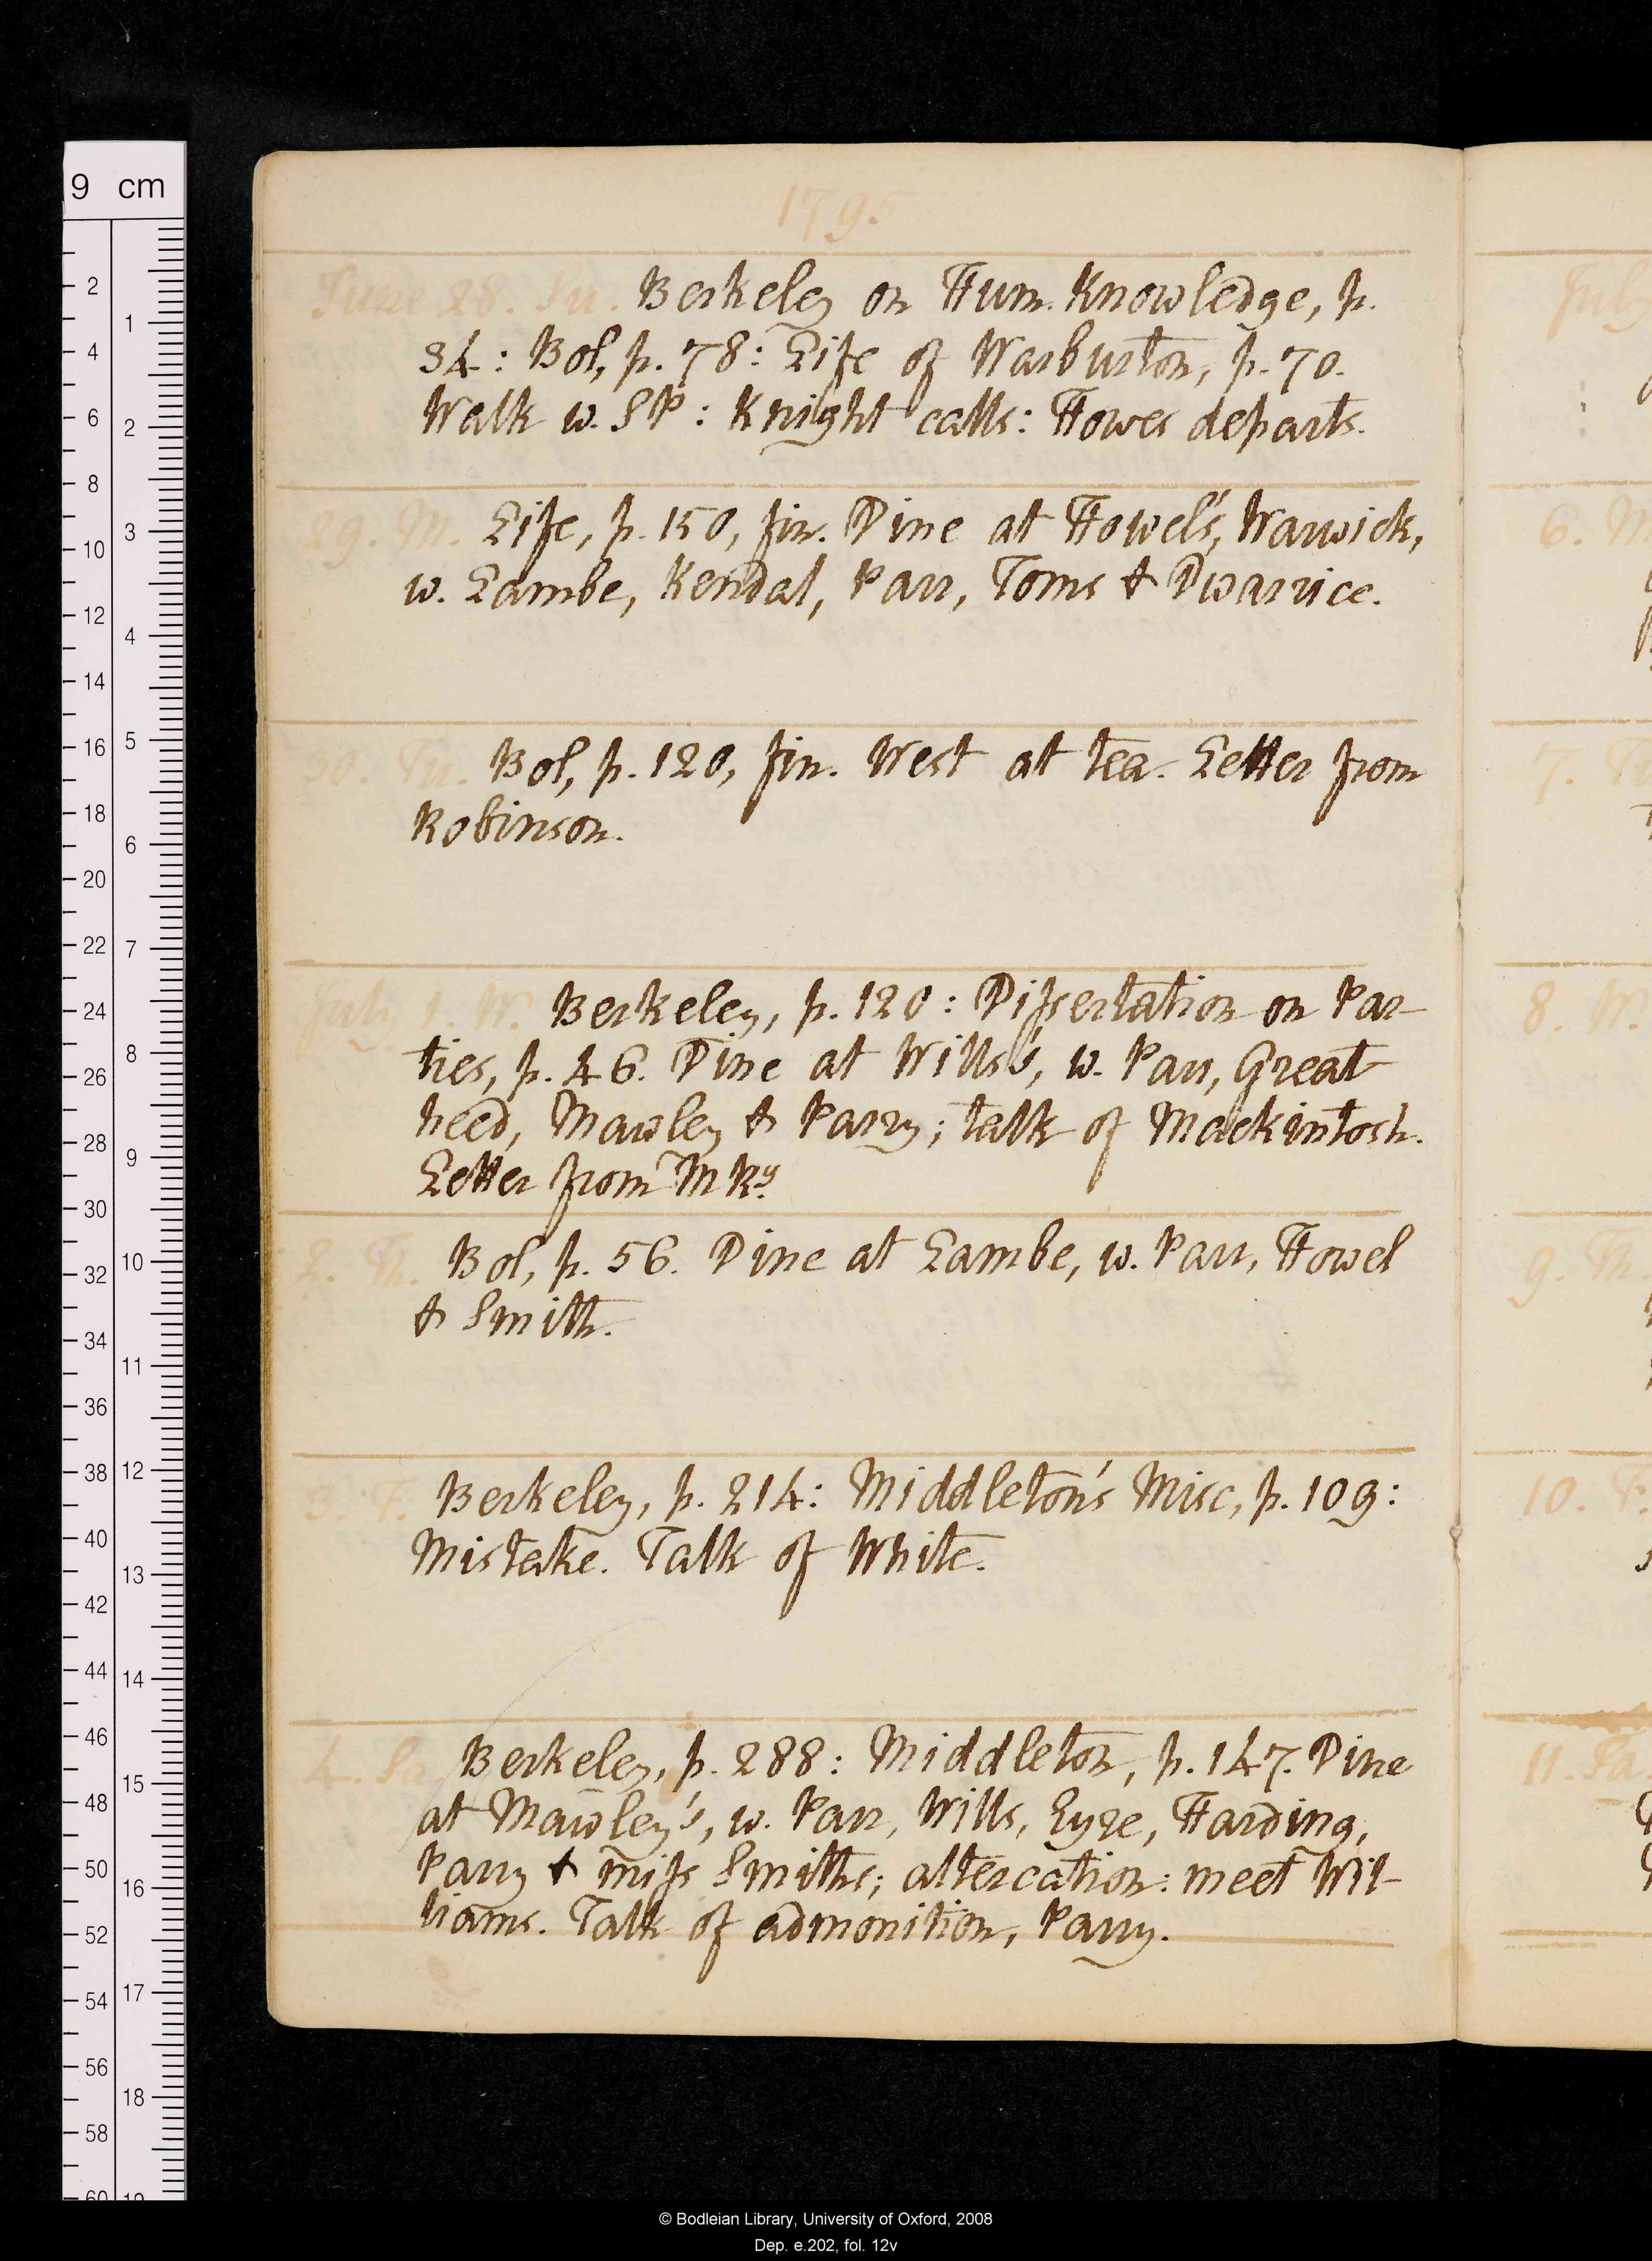 1795
June 28. Su. Berkeley on Hum. Knowledge, p.
34: Bol, p. 78: Life of Warburton, p. 70.
Walk w. SP: Knight calls: Hower departs.
29. M. Life, p. 150, fin. Dine at Howel's, Warwick,
w. Lambe, Kendal, Parr, Toms & Dwarrice.
30. Tu. Bol, p. 120, fin. West at tea. Letter from
Robinson.
July 1. W. Berkeley, p. 120: Dissertation on Par-
ties, p. 46. Dine at Wills's, w. Parr, Great
heed, Mawley & Parry; talk of Mackintosh.
Letter from M Ry
2. Th. Bol, p. 56. Dine at Lambe, w. Parr, Howel
& Smith.
3. F. Berkeley, p. 214: Middleton's Misc, p. 109:
Mistake. Talk of White.
4. Sa Berkeley, p. 288: Middleton, p. 147. Dine
at Mawley's, w. Parr, Wills, Eyre, Harding,
Parry & miss Smiths; altercation: meet Wil-
liams. Talk of admonition, Parry.
July
6. M
7. Tu
8. W.
9. Th
10. F.
11. Sa.
9 cm
2
4
6
8
10
12
14
16
18
20
22
24
26
28
30
32
34
36
38
40
42
44
46
48
50
52
54
56
58
60
1
2
3
4
5
6
7
8
9
10
11
12
13
14
15
16
17
18
© Bodleian Library, University of Oxford, 2008
Dep. e.202, fol. 12v